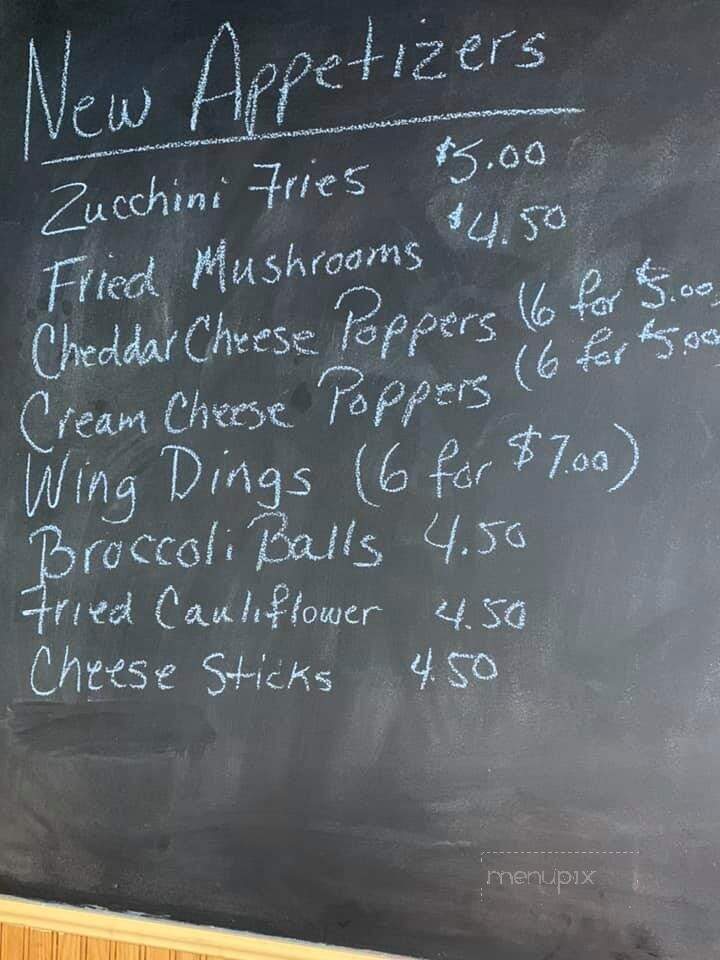 New Appetizers
Zucchini Fries $5.00
Fried Mushrooms $4.50
Cheddar Cheese Poppers (6 for $5.00)
Cream Cheese Poppers (6 for $5.00
Wing Dings (6 for $7.00)
Broccoli Balls 4.50
Fried Cauliflower 4.50
Cheese Sticks 4.50
menupix